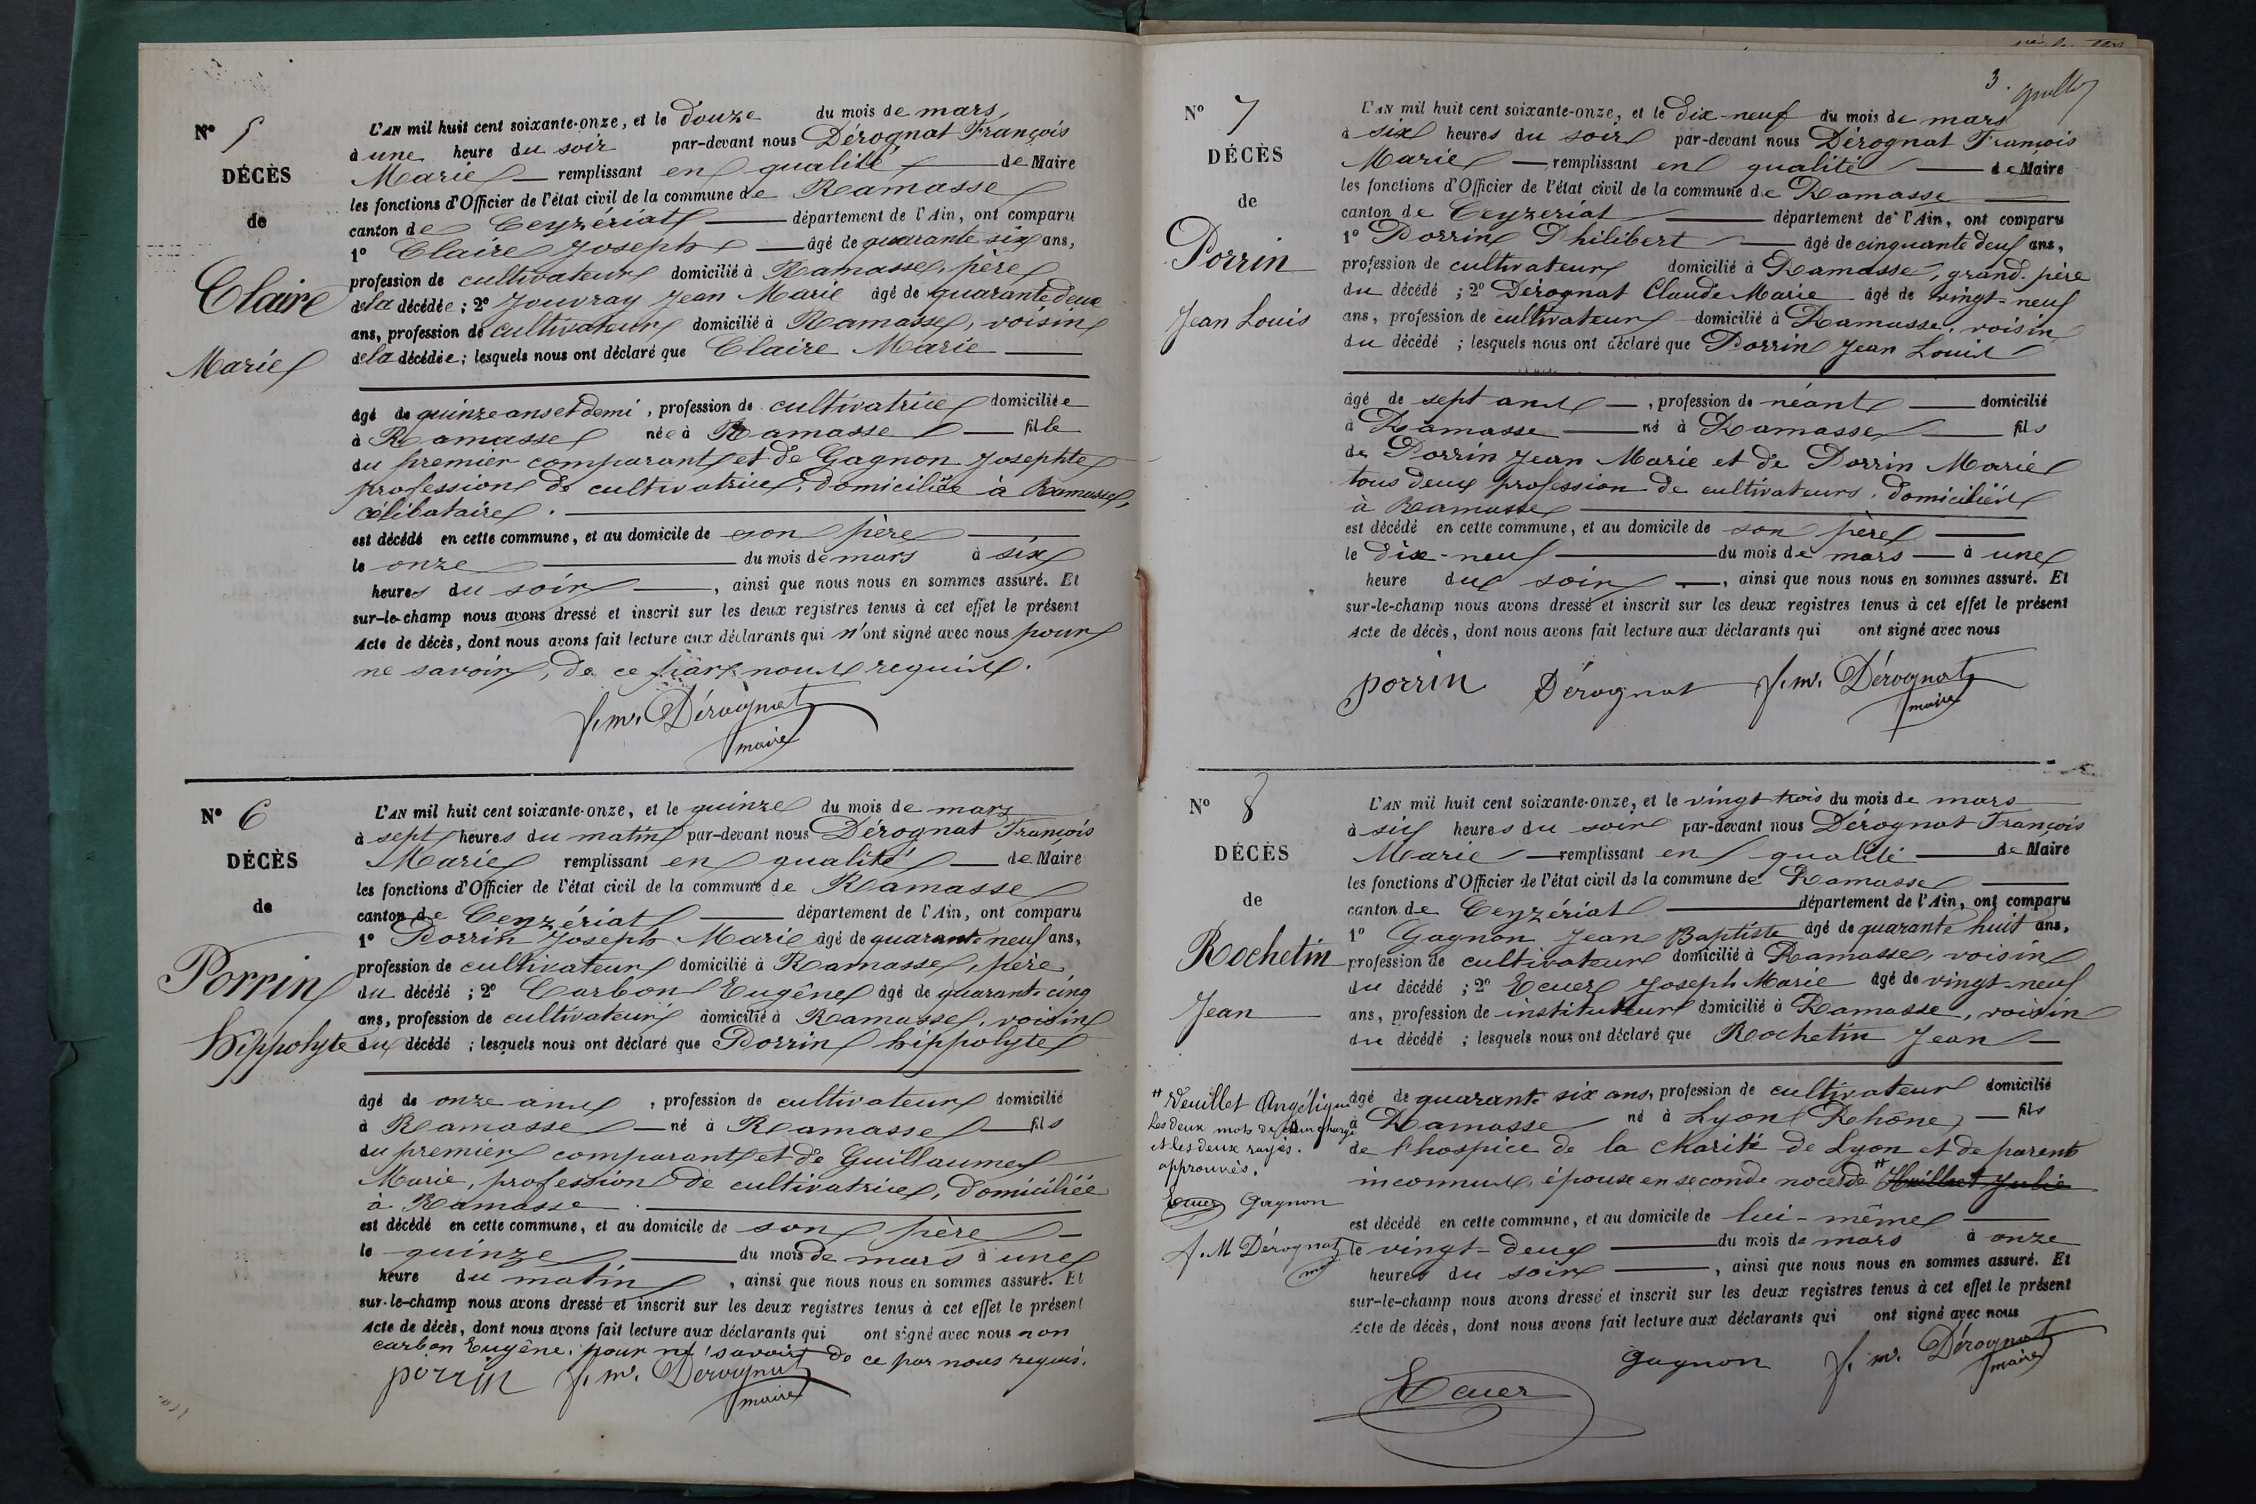 N° 5
DÉCÈS
de
Claire
Marie
L'AN mil huit cent soixante-onze, et le douze du mois de mars
à une heure du soir par-devant nous Dérognat François
Marie — remplissant en qualité — de Maire
les fonctions d'Officier de l'état civil de la commune de Ramasse
canton de Ceyzériat — département de l'Ain, ont comparu
1° Claire Joseph — âgé de quarante six ans,
profession de cultivateur domicilié à Ramasse, père
de la décédée ; 2° Jouvray Jean Marie âgé de quarante deux
ans, profession de cultivateur domicilié à Ramasse, voisin
de la décédée ; lesquels nous ont déclaré que Claire Marie —
âgé de quinze ans et demi, profession de cultivatrice domiciliée
à Ramasse née à Ramasse — fille
du premier comparant et de Gagnon Josephte
profession de cultivatrice, domiciliée à Ramasse,
célibataire. —
est décédé en cette commune, et au domicile de son père —
le onze — du mois de mars à six
heures du soir —, ainsi que nous nous en sommes assuré. Et
sur-le-champ nous avons dressé et inscrit sur les deux registres tenus à cet effet le présent
Acte de décès, dont nous avons fait lecture aux déclarants qui n'ont signé avec nous pour
ne savoir, de ce par nous requis.
f. m. Dérognat
maire
N° 6
DÉCÈS
de
Porrin
hippolyte
L'AN mil huit cent soixante-onze, et le quinze du mois de mars
à sept heures du matin par-devant nous Dérognat François
Marie remplissant en qualité — de Maire
les fonctions d'Officier de l'état civil de la commune de Ramasse
canton de Ceyzériat — département de l'Ain, ont comparu
1° Porrin Joseph Marie âgé de quarante neuf ans,
profession de cultivateur domicilié à Ramasse, père
du décédé ; 2° Carbon Eugène âgé de quarante cinq
ans, profession de cultivateur domicilié à Ramasse, voisin
du décédé ; lesquels nous ont déclaré que Porrin hippolyte
âgé de onze ans, profession de cultivateur domicilié
à Ramasse — né à Ramasse — fils
du premier comparant et de Guillaume
Marie, profession de cultivatrice, domiciliée
à Ramasse. —
est décédé en cette commune, et au domicile de son père —
le quinze — du mois de mars à une
heure du matin, ainsi que nous nous en sommes assuré. Et
sur-le-champ nous avons dressé et inscrit sur les deux registres tenus à cet effet le présent
Acte de décès, dont nous avons fait lecture aux déclarants qui ont signé avec nous non
carbon Eugène, pour ne savoir de ce par nous requis.
porrin f. m. Dérognat
maire
3.
N° 7
DÉCÈS
de
Porrin
Jean Louis
L'AN mil huit cent soixante-onze, et le dix-neuf du mois de mars
à six heures du soir par-devant nous Dérognat François
Marie — remplissant en qualité — de Maire
les fonctions d'Officier de l'état civil de la commune de Ramasse —
canton de Ceyzeriat — département de l'Ain, ont comparu
1° Porrin Philibert — âgé de cinquante deux ans,
profession de cultivateur domicilié à Ramasse, grand-père
du décédé ; 2° Dérognat Claude Marie âgé de vingt-neuf
ans, profession de cultivateur domicilié à Ramasse, voisin
du décédé ; lesquels nous ont déclaré que Porrin Jean Louis
âgé de sept ans —, profession de néant — domicilié
à Ramasse — né à Ramasse — fils
de Porrin Jean Marie et de Porrin Marie
tous deux profession de cultivateurs, domiciliés
à Ramasse —
est décédé en cette commune, et au domicile de son père —
le dix-neuf — du mois de mars — à une
heure du soir —, ainsi que nous nous en sommes assuré. Et
sur-le-champ nous avons dressé et inscrit sur les deux registres tenus à cet effet le présent
Acte de décès, dont nous avons fait lecture aux déclarants qui ont signé avec nous
porrin Dérognat f. m. Dérognat
maire
N° 8
DÉCÈS
de
Rochetin
Jean
L'AN mil huit cent soixante-onze, et le vingt trois du mois de mars
à six heures du soir par-devant nous Dérognat François
Marie — remplissant en qualité — de Maire
les fonctions d'Officier de l'état civil de la commune de Ramasse —
canton de Ceyzériat — département de l'Ain, ont comparu
1° Gagnon Jean Baptiste âgé de quarante huit ans,
profession de cultivateur domicilié à Ramasse, voisin
du décédé ; 2° Ecuer Joseph Marie âgé de vingt-neuf
ans, profession de instituteur domicilié à Ramasse, voisin
du décédé ; lesquels nous ont déclaré que Rochetin Jean —
âgé de quarante six ans, profession de cultivateur domicilié
à Ramasse né à Lyon Rhône — fils
de l'hospice de la charité de Lyon et de parents
inconnus, époux en seconde noce de # Huillet Julie
est décédé en cette commune, et au domicile de lui-même —
le vingt-deux — du mois de mars à onze
heures du soir —, ainsi que nous nous en sommes assuré. Et
sur-le-champ nous avons dressé et inscrit sur les deux registres tenus à cet effet le présent
Acte de décès, dont nous avons fait lecture aux déclarants qui ont signé avec nous
gagnon f. m. Dérognat
maire
Ecuer
# Veuillet Angélique
Les deux mots de surcharge
et les deux rayés.
approuvés.
Ecuer Gagnon
f. M Dérognat